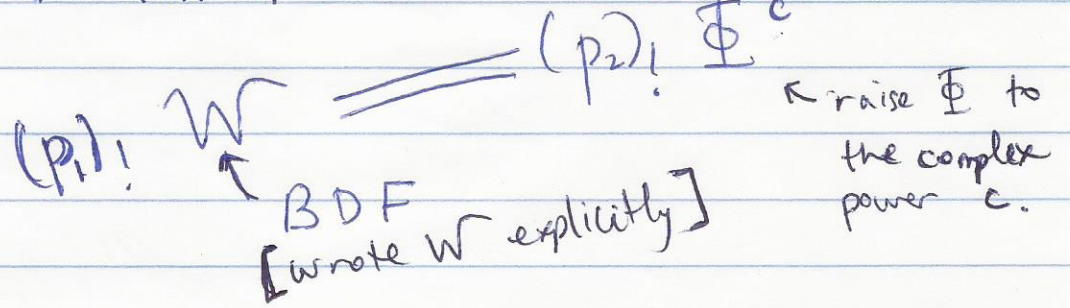 (p₁)! W = (p₂)! Φ^c
↖ raise Φ to
the complex
power c.
↑ BDF
[wrote W explicitly]